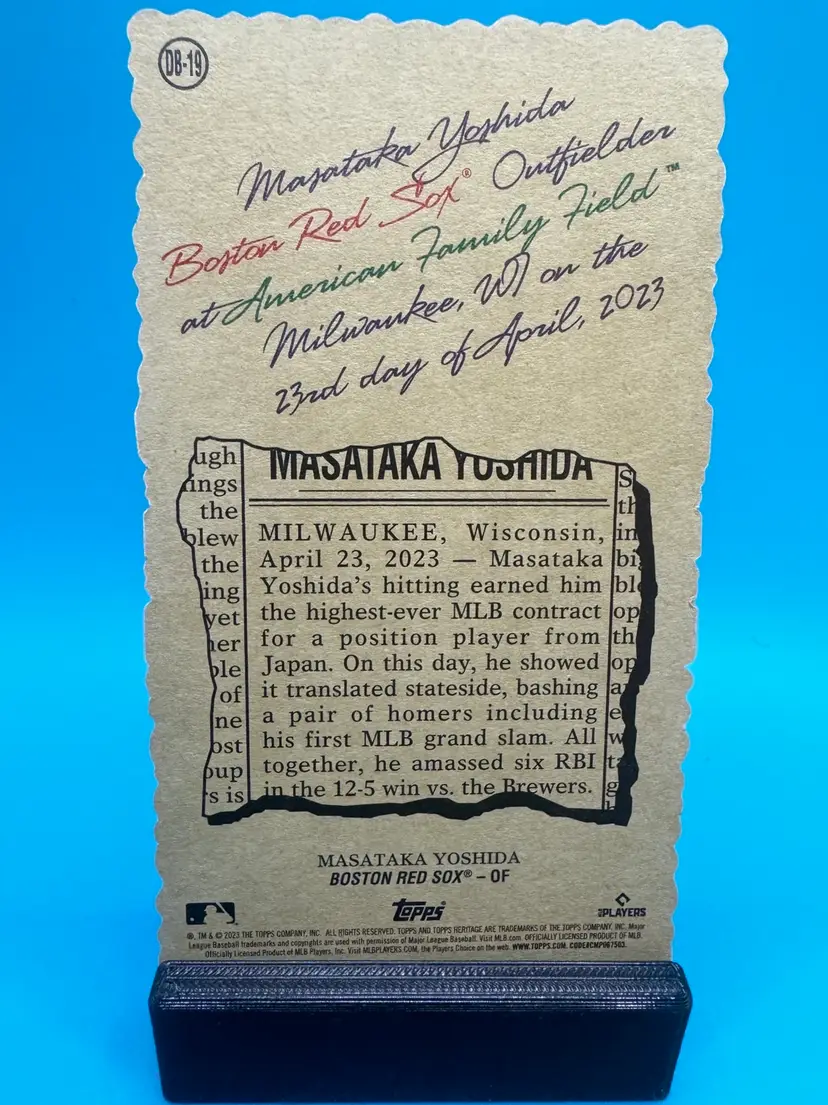 DB-19
Masataka Yoshida
Boston Red Sox® Outfielder
at American Family Field™
Milwaukee, WI on the
23rd day of April, 2023
MASATAKA YOSHIDA
MILWAUKEE, Wisconsin,
April 23, 2023 — Masataka
Yoshida's hitting earned him
the highest-ever MLB contract
for a position player from
Japan. On this day, he showed
it translated stateside, bashing
a pair of homers including
his first MLB grand slam. All
together, he amassed six RBI
in the 12-5 win vs. the Brewers.
ugh
ings
the
blew
the
ing
yet
her
ple
of
ne
ost
oup
's is
MASATAKA YOSHIDA
BOSTON RED SOX® – OF
Topps
MLB PLAYERS
®, TM & © 2023 THE TOPPS COMPANY, INC. ALL RIGHTS RESERVED. TOPPS AND TOPPS HERITAGE ARE TRADEMARKS OF THE TOPPS COMPANY, INC. Major
League Baseball trademarks and copyrights are used with permission of Major League Baseball. Visit MLB.com. OFFICIALLY LICENSED PRODUCT OF MLB
Officially Licensed Product of MLB Players, Inc. Visit MLBPLAYERS.COM, the Players Choice on the web. WWW.TOPPS.COM. CODE#CMP067503.